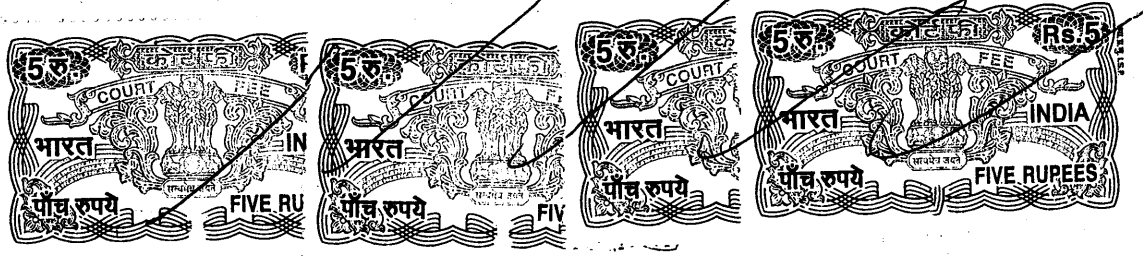 5 रु. कोर्ट फी
COURT FEE
भारत IN
सत्यमेव जयते
पाँच रुपये FIVE RU
5 रु. कोर्ट फी
COURT
भारत
पाँच रुपये FIV
5 रु.
COURT
भारत
पाँच रुपये
5 रु. कोर्ट फी Rs. 5
COURT FEE
भारत INDIA
सत्यमेव जयते
पाँच रुपये FIVE RUPEES